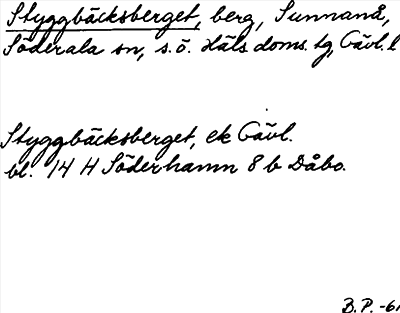 Styggbäcksberget, berg, Sunnanå,
Söderala sn, s.ö. Häls doms. tg, Gävl. l
Styggbäcksberget, ek Gävl.
bl. 14 H Söderhamn 8 b Dåbo.
B.P. -61